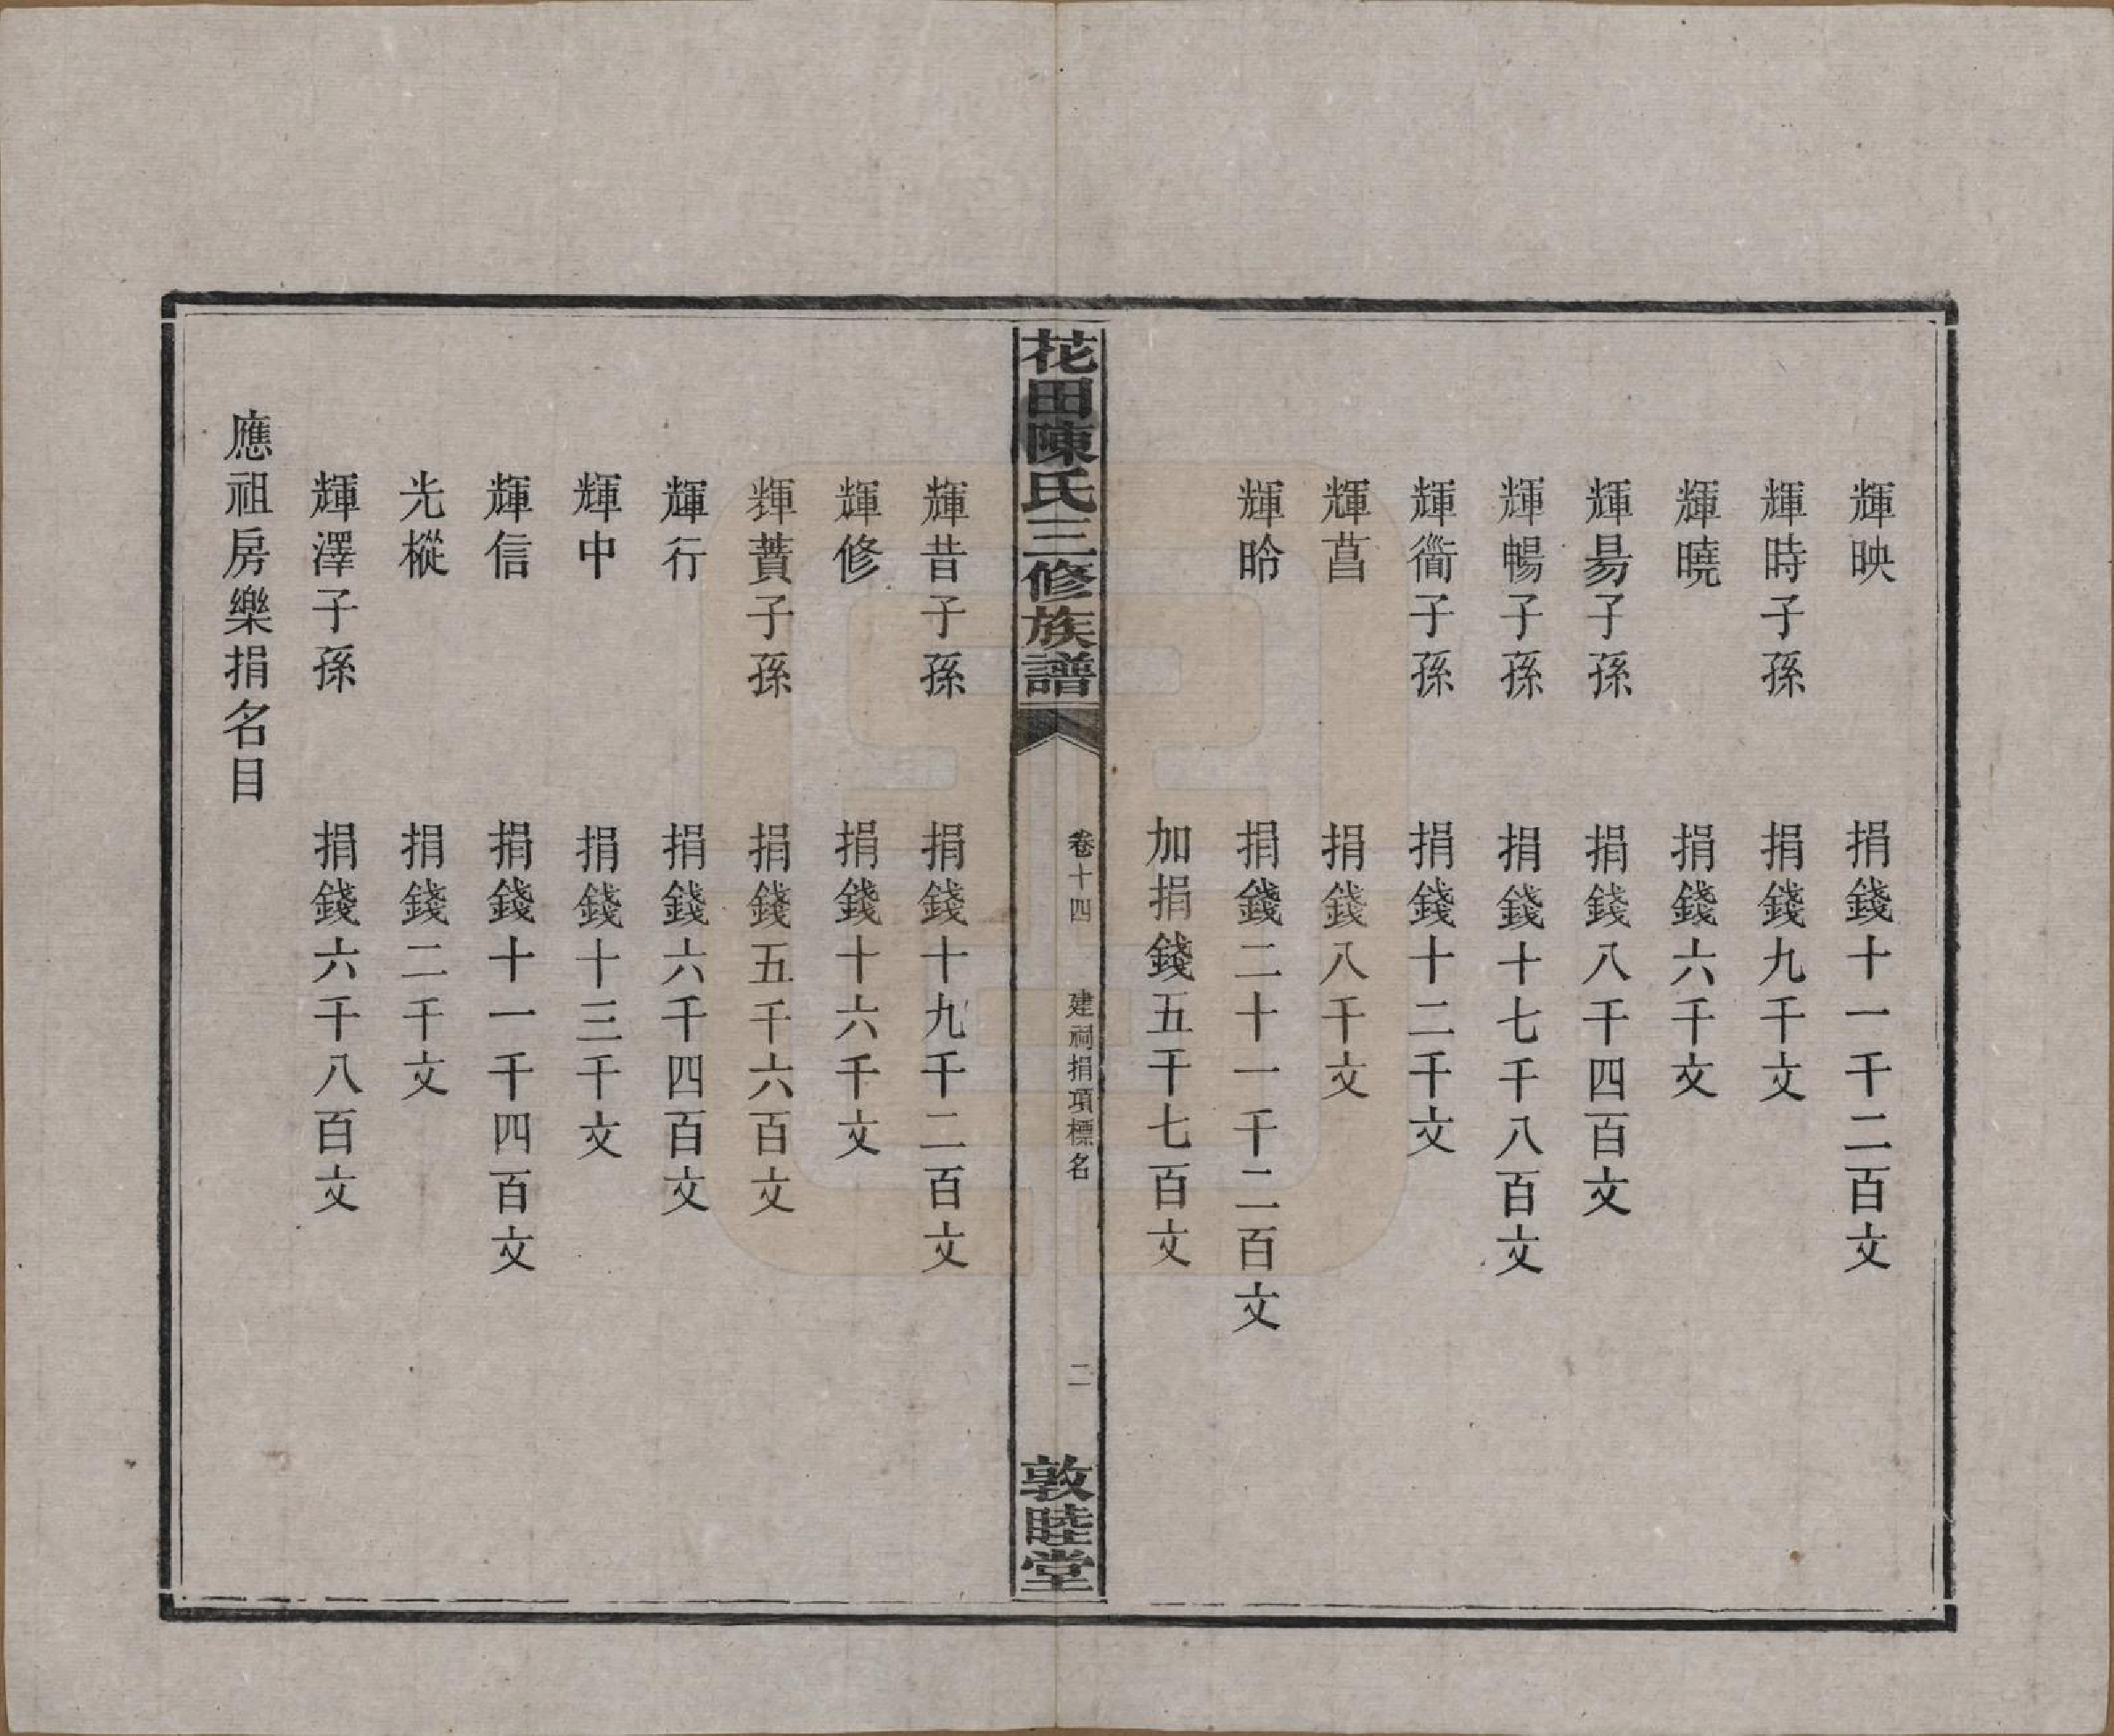 輝映　捐錢十一千二百文
輝時子孫　捐錢九千文
輝曉　捐錢六千文
輝昜子孫　捐錢八千四百文
輝暢子孫　捐錢十七千八百文
輝衟子孫　捐錢十二千文
輝菖　捐錢八千文
輝昤　捐錢二十一千二百文
加捐錢五千七百文
花田陳氏三修族譜　卷十四　建祠捐項標名　二　敦睦堂
輝昔子孫　捐錢十九千二百文
輝修　捐錢十六千文
輝蕡子孫　捐錢五千六百文
輝行　捐錢六千四百文
輝中　捐錢十三千文
輝信　捐錢十一千四百文
光樅　捐錢二千文
輝澤子孫　捐錢六千八百文
應祖房樂捐名目